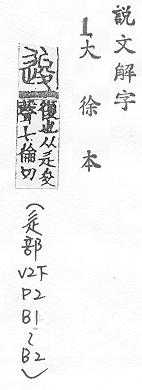 説文解字
1.大徐本
逡
復也从辵夋
聲七倫切
(辵部 V2下 P2 B1~B2)